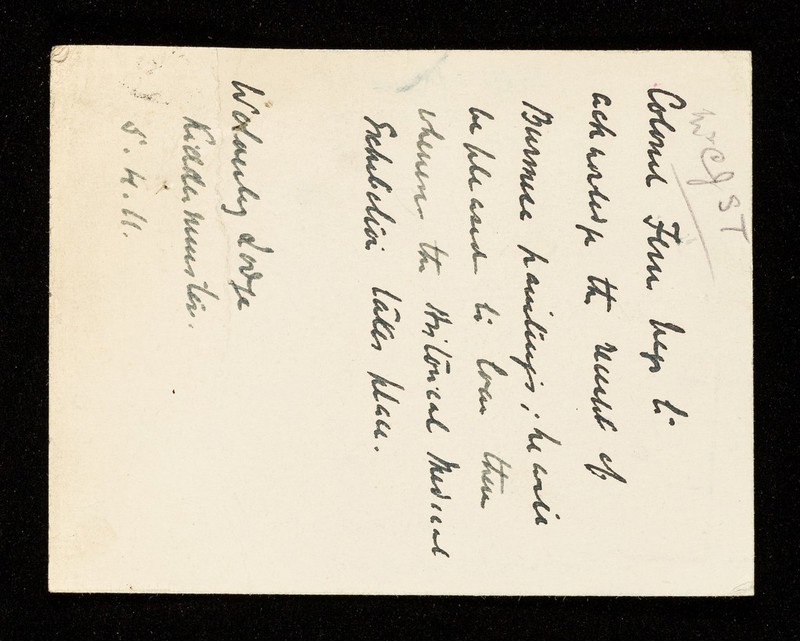 Colonel Fenn begs to
acknowledge the receipt of
Burmese paintings; he will
be pleased to loan them
whenever the Historical Medical
Exhibition takes place.
Wolverley Lodge
Kidderminster.
5. 4. 11.